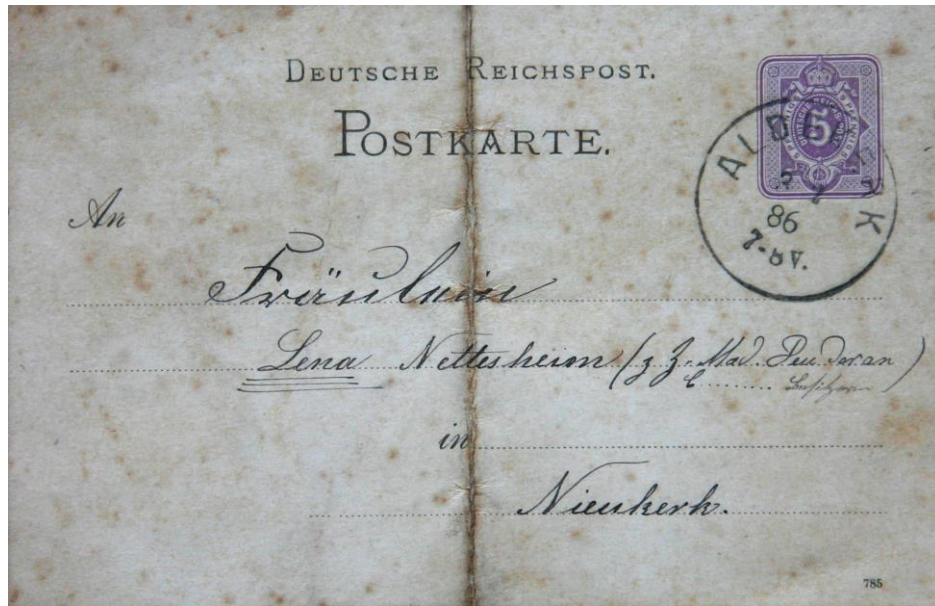 DEUTSCHE REICHSPOST.
POSTKARTE.
5
ALDEKERK
86
7-8V.
An
Fräulein
Lena Nettesheim (z. Z. Mad.
in
Nieukerk.
785